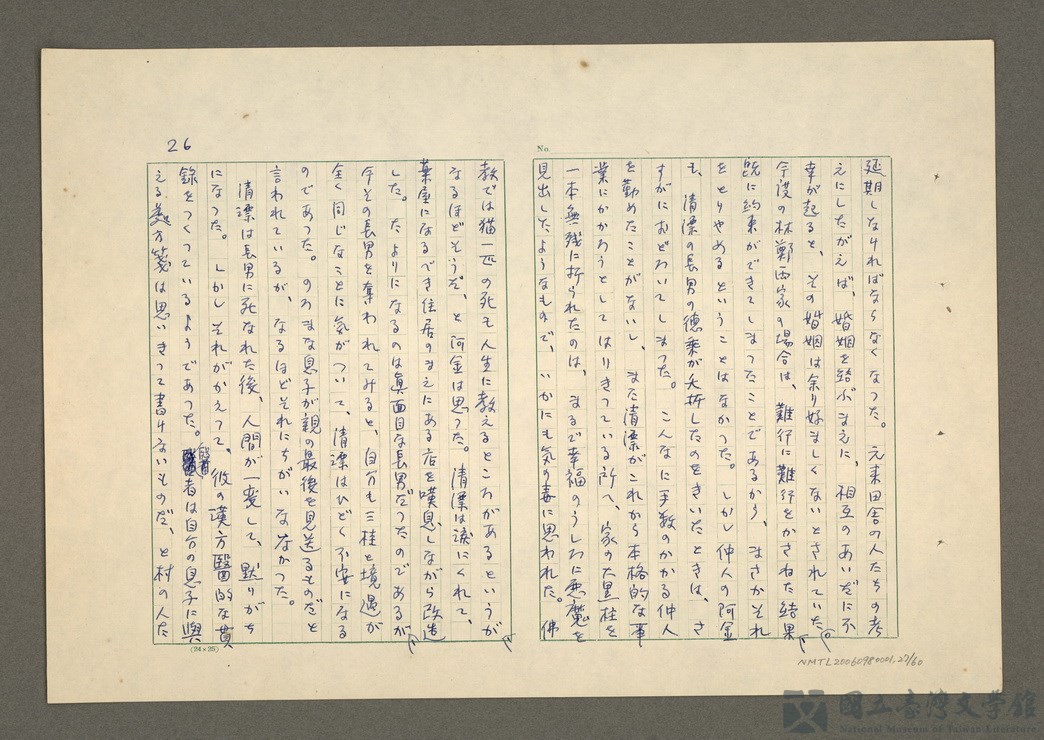 26
No.
延期しなければならなくなつた。元来田舎の人たちの考
えにしたがえば、婚姻を結ぶまえに、相互のあいだに不
幸が起ると、その婚姻は余り好ましくないとされていた。
今度の林鄭両家の場合は、難行に難行をかさねた結果、
既に約束ができてしまつたことであるから、まさかそれ
をとりやめるということはなかつた。しかし仲人の阿金
も、清漂の長男の徳乗が夭折したのをきいたときは、さ
すがにおどろいてしまつた。こんなに手数のかかる仲人
を勤めたことがないし、また清漂がこれから本格的な事
業にかかろうとしてはりきつている所へ、家の大黒柱を
一本無残に折られたのは、まるで幸福のうしろに悪魔を
見出したようなもので、いかにも気の毒に思われた。佛
教では猫一匹の死も人生に教えるところがあるというが
なるほどそうだ、と阿金は思つた。清漂は涙にくれて、
葉屋になるべき住居のまえにある店を嘆息しながら改造
した。たよりになるのは真面目な長男だつたのであるが、
今その長男を奪われてみると、自分も三桂と境遇が
全く同じなことに気がついて、清漂はひどく不安になる
のであつた。のろまな息子が親の最後を見送るものだと
言われているが、なるほどそれにちがいなかつた。
清漂は長男に死なれた後、人間が一変して、黙りがち
になつた。しかしそれがかえつて、彼の漢方醫的な貫
録をつくつているようであつた。醫者は自分の息子に與
える処方箋は思いきつて書けないものだ、と村の人た
(24×25)
NMTL20060980001,27/60
國立臺灣文學館
National Museum of Taiwan Literature